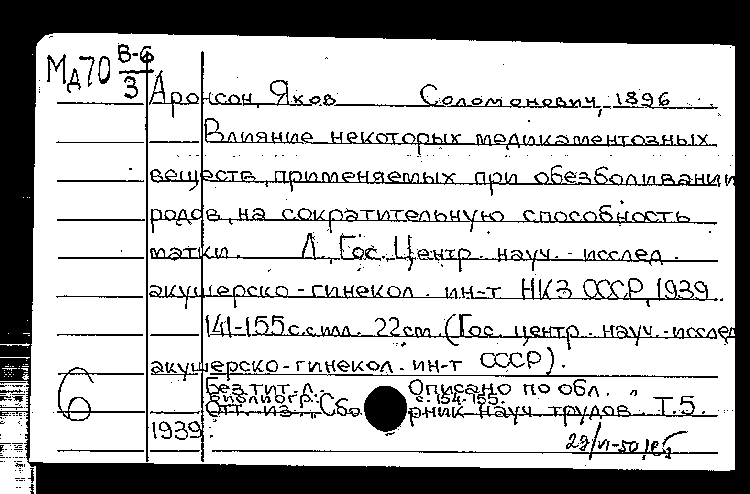 Мд70 В-6
3
Аронсон, Яков Соломонович, 1896
Влияние некоторых медикаментозных
веществ, применяемых при обезболивании
родов, на сократительную способность
матки. Л., Гос. Центр. науч.-исслед.
акушерско-гинекол. ин-т НКЗ СССР, 1939.
141-155 с. с илл. 22 см. (Гос. центр. науч.-исслед
акушерско-гинекол. ин-т СССР).
Без тит. л. Описано по обл.
Библиогр.: с. 154-155.
6 Отт. из: „Сборник науч. трудов", Т.5.
1939.